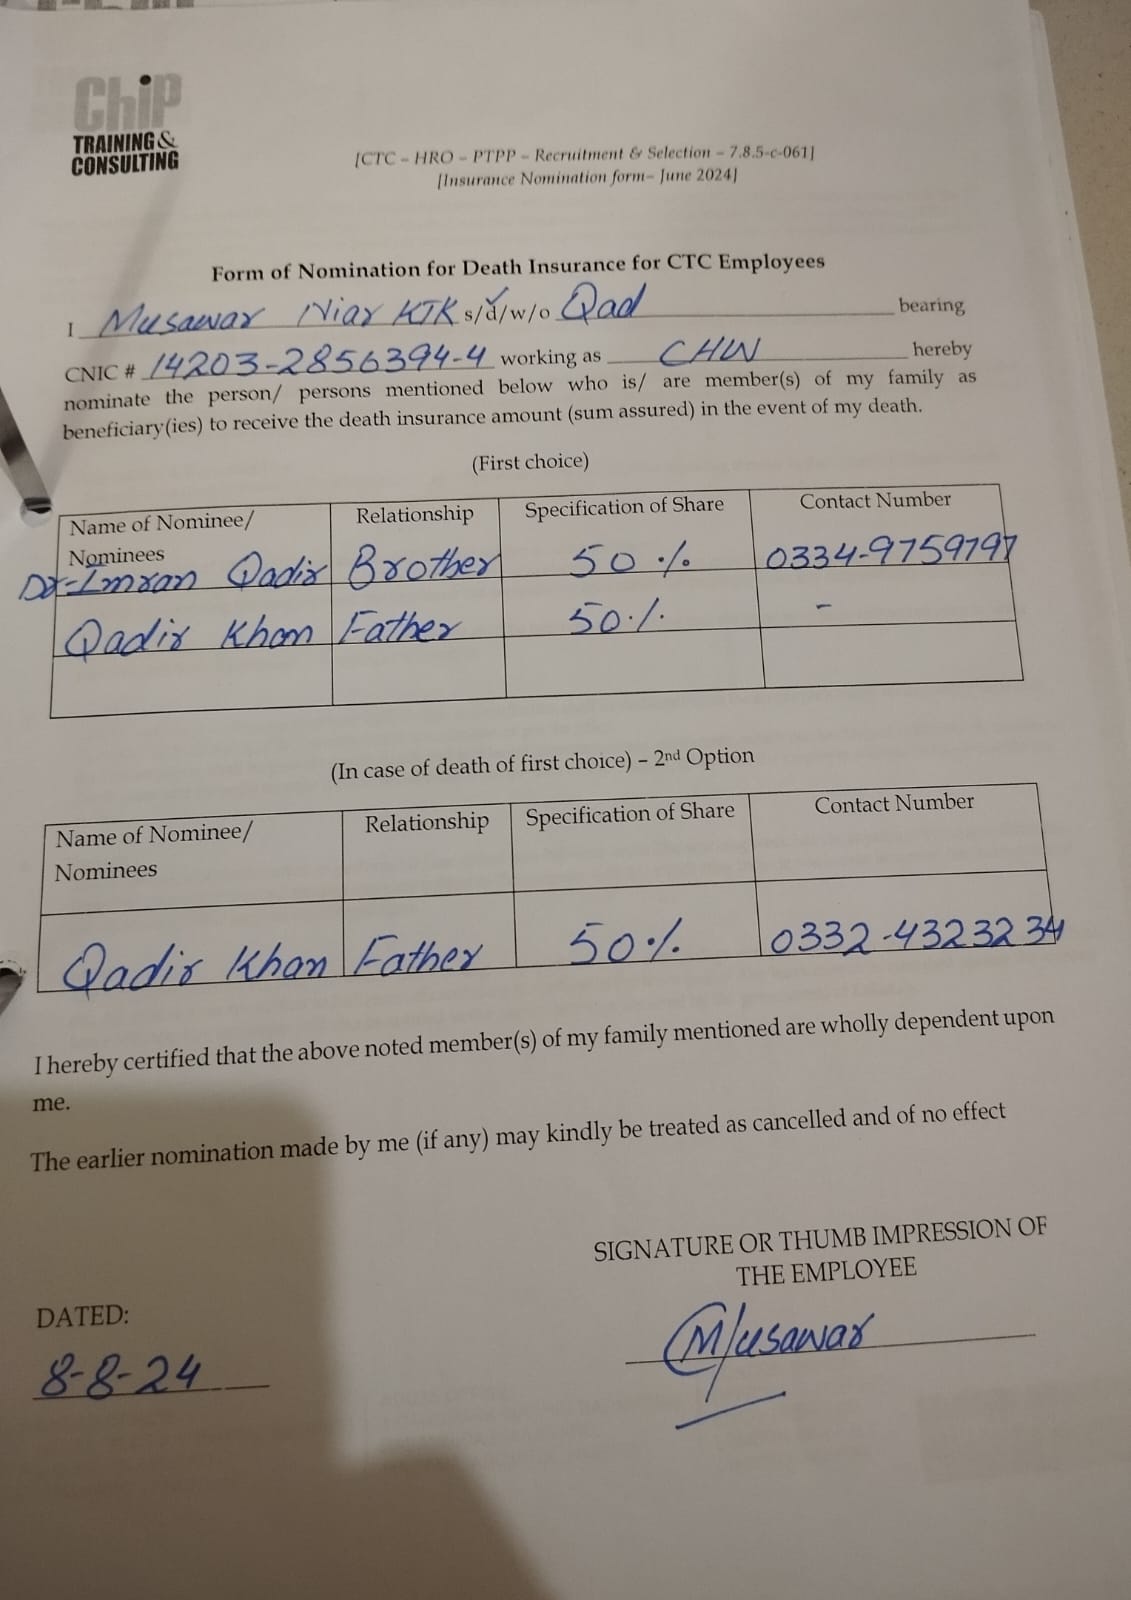 ChiP
TRAINING &
CONSULTING
[CTC – HRO – PTPP – Recruitment & Selection – 7.8.5-c-061]
[Insurance Nomination form– June 2024]
Form of Nomination for Death Insurance for CTC Employees
I Musawar Niar KTK s/d/w/o Qad bearing
CNIC # 14203-2856394-4 working as CHW hereby
nominate the person/ persons mentioned below who is/ are member(s) of my family as
beneficiary(ies) to receive the death insurance amount (sum assured) in the event of my death.
(First choice)
Name of Nominee/ Relationship Specification of Share Contact Number
Nominees
Dr-Imran Qadir Brother 50% 0334-9759797
Qadir Khan Father 50% -
(In case of death of first choice) – 2nd Option
Name of Nominee/ Relationship Specification of Share Contact Number
Nominees
Qadir Khan Father 50% 0332-4323234
I hereby certified that the above noted member(s) of my family mentioned are wholly dependent upon
me.
The earlier nomination made by me (if any) may kindly be treated as cancelled and of no effect
SIGNATURE OR THUMB IMPRESSION OF
THE EMPLOYEE
DATED:
Musawar
8-8-24